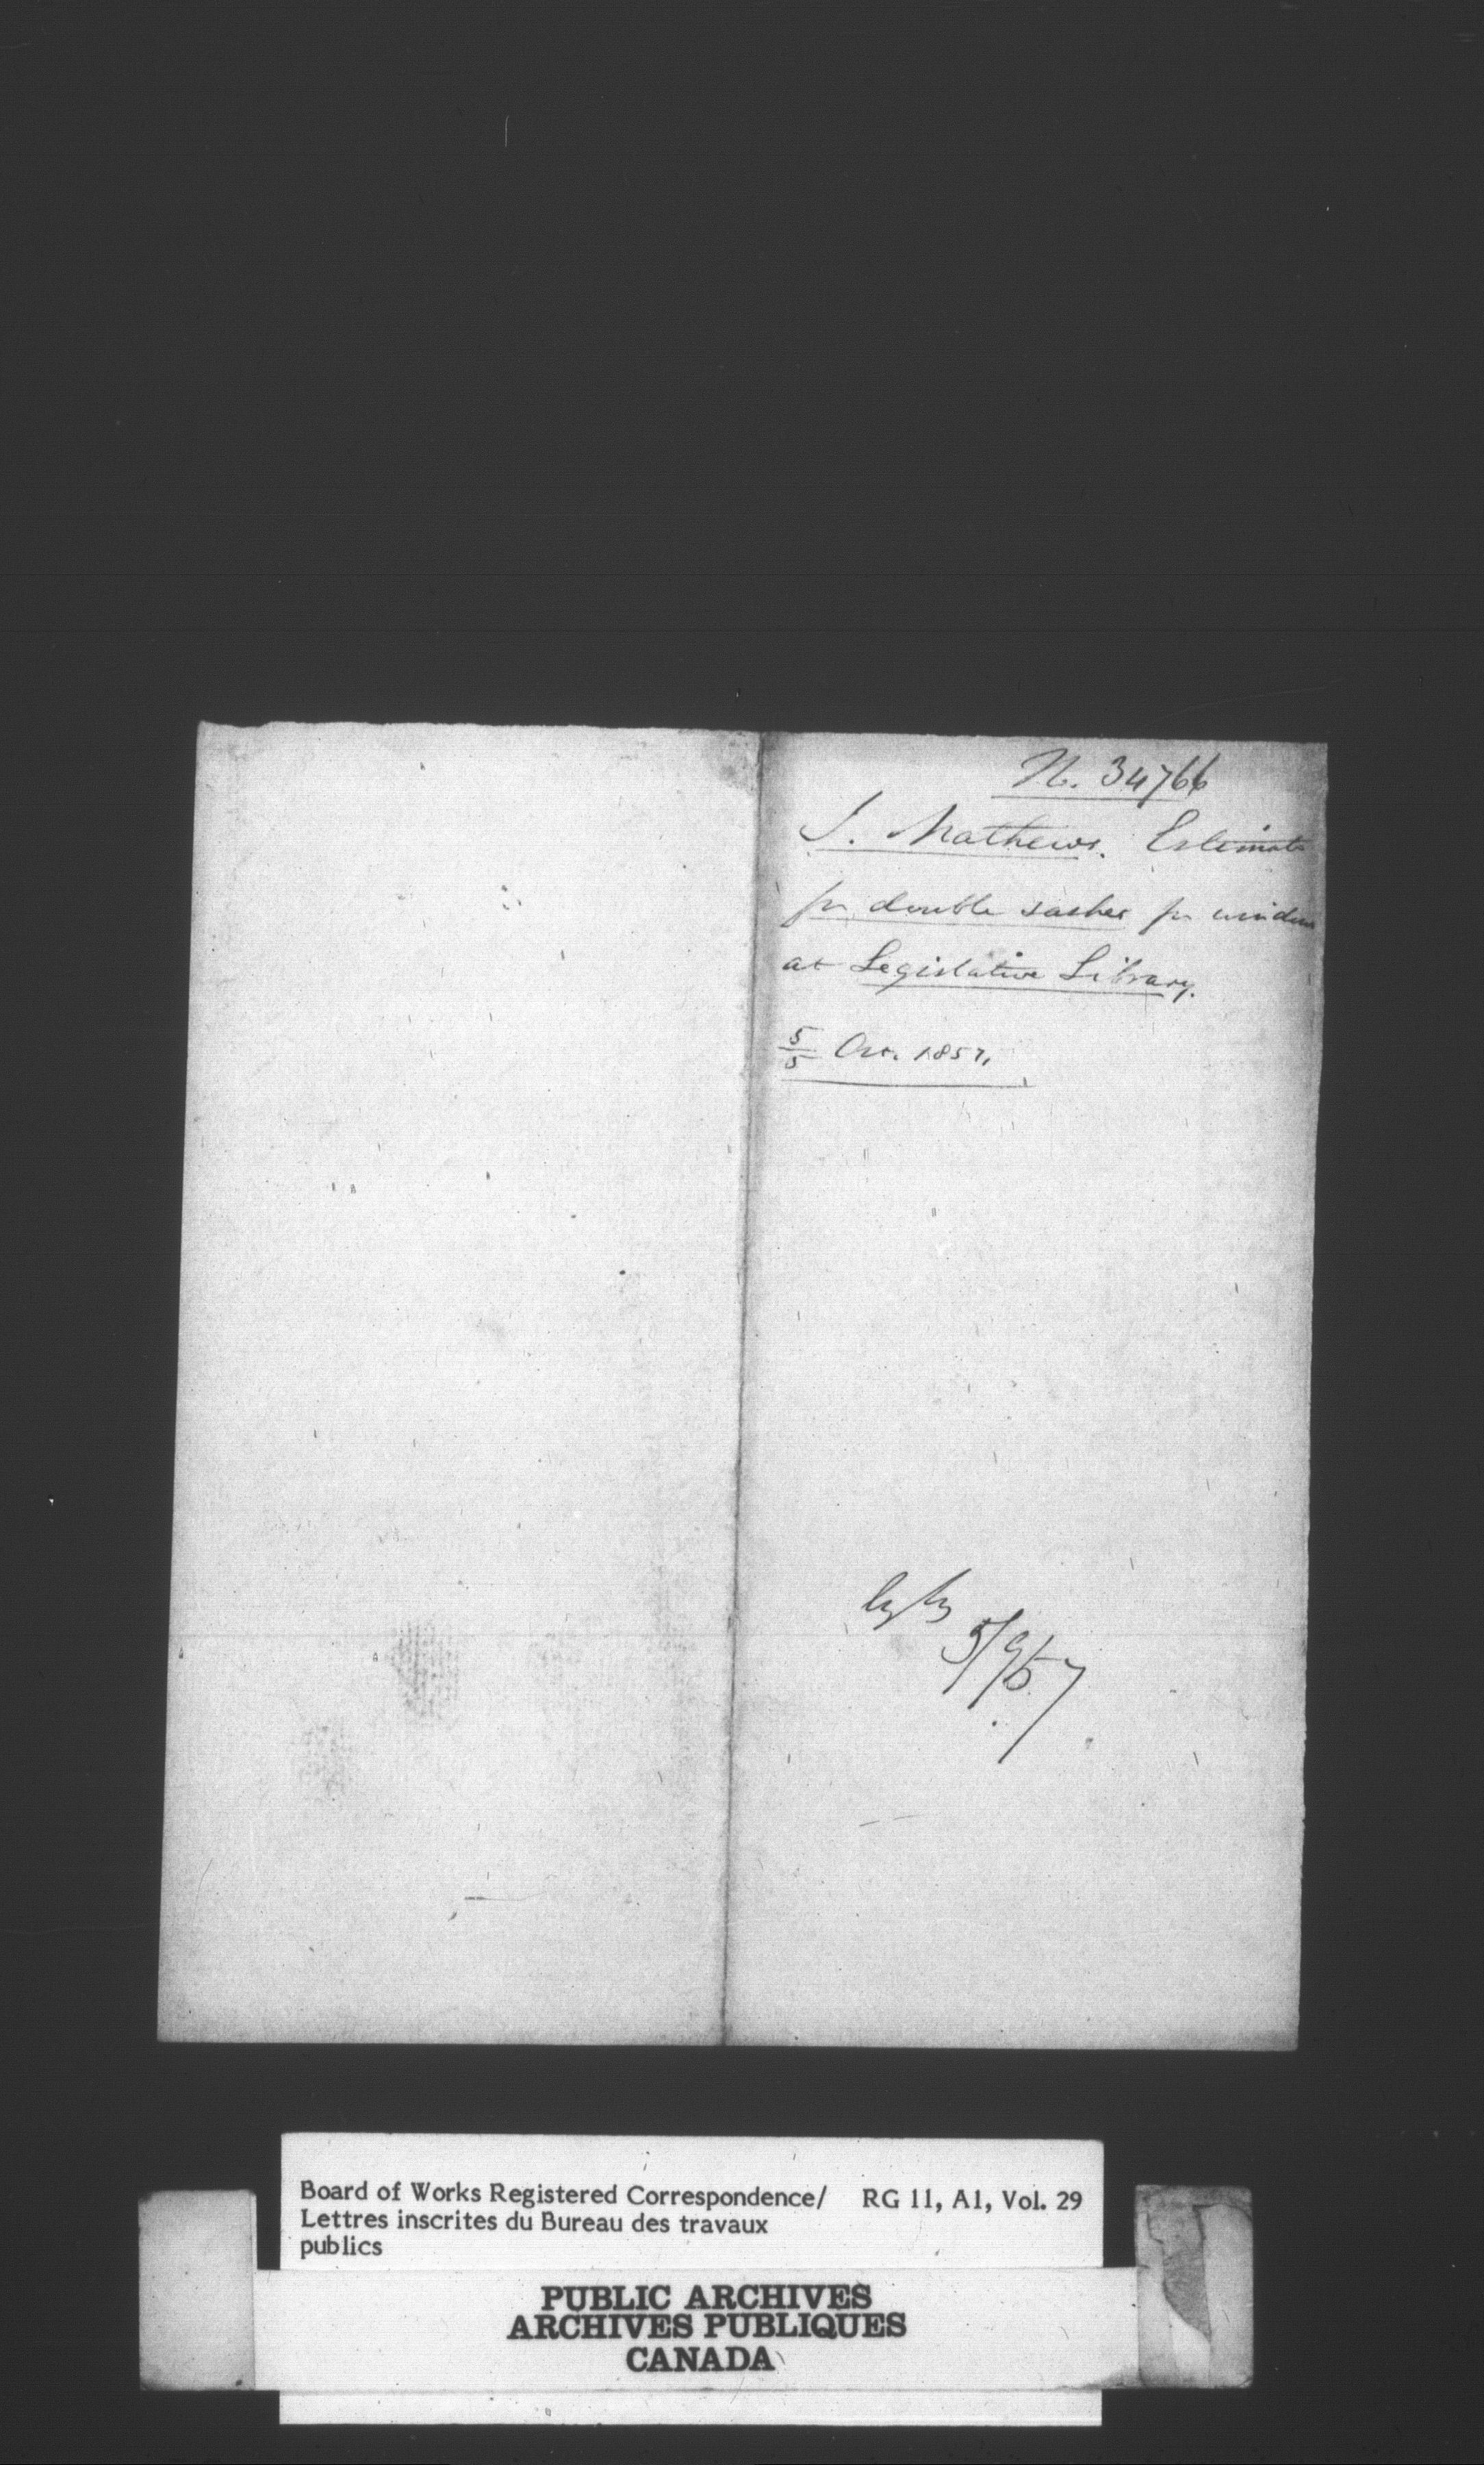 No. 34766
J. Mathews. Estimate
for double sashes for window
at Legislative Library.
5/5 Oct. 1857.
5/9/57
Board of Works Registered Correspondence/ RG 11, A1, Vol. 29
Lettres inscrites du Bureau des travaux
publics
PUBLIC ARCHIVES
ARCHIVES PUBLIQUES
CANADA